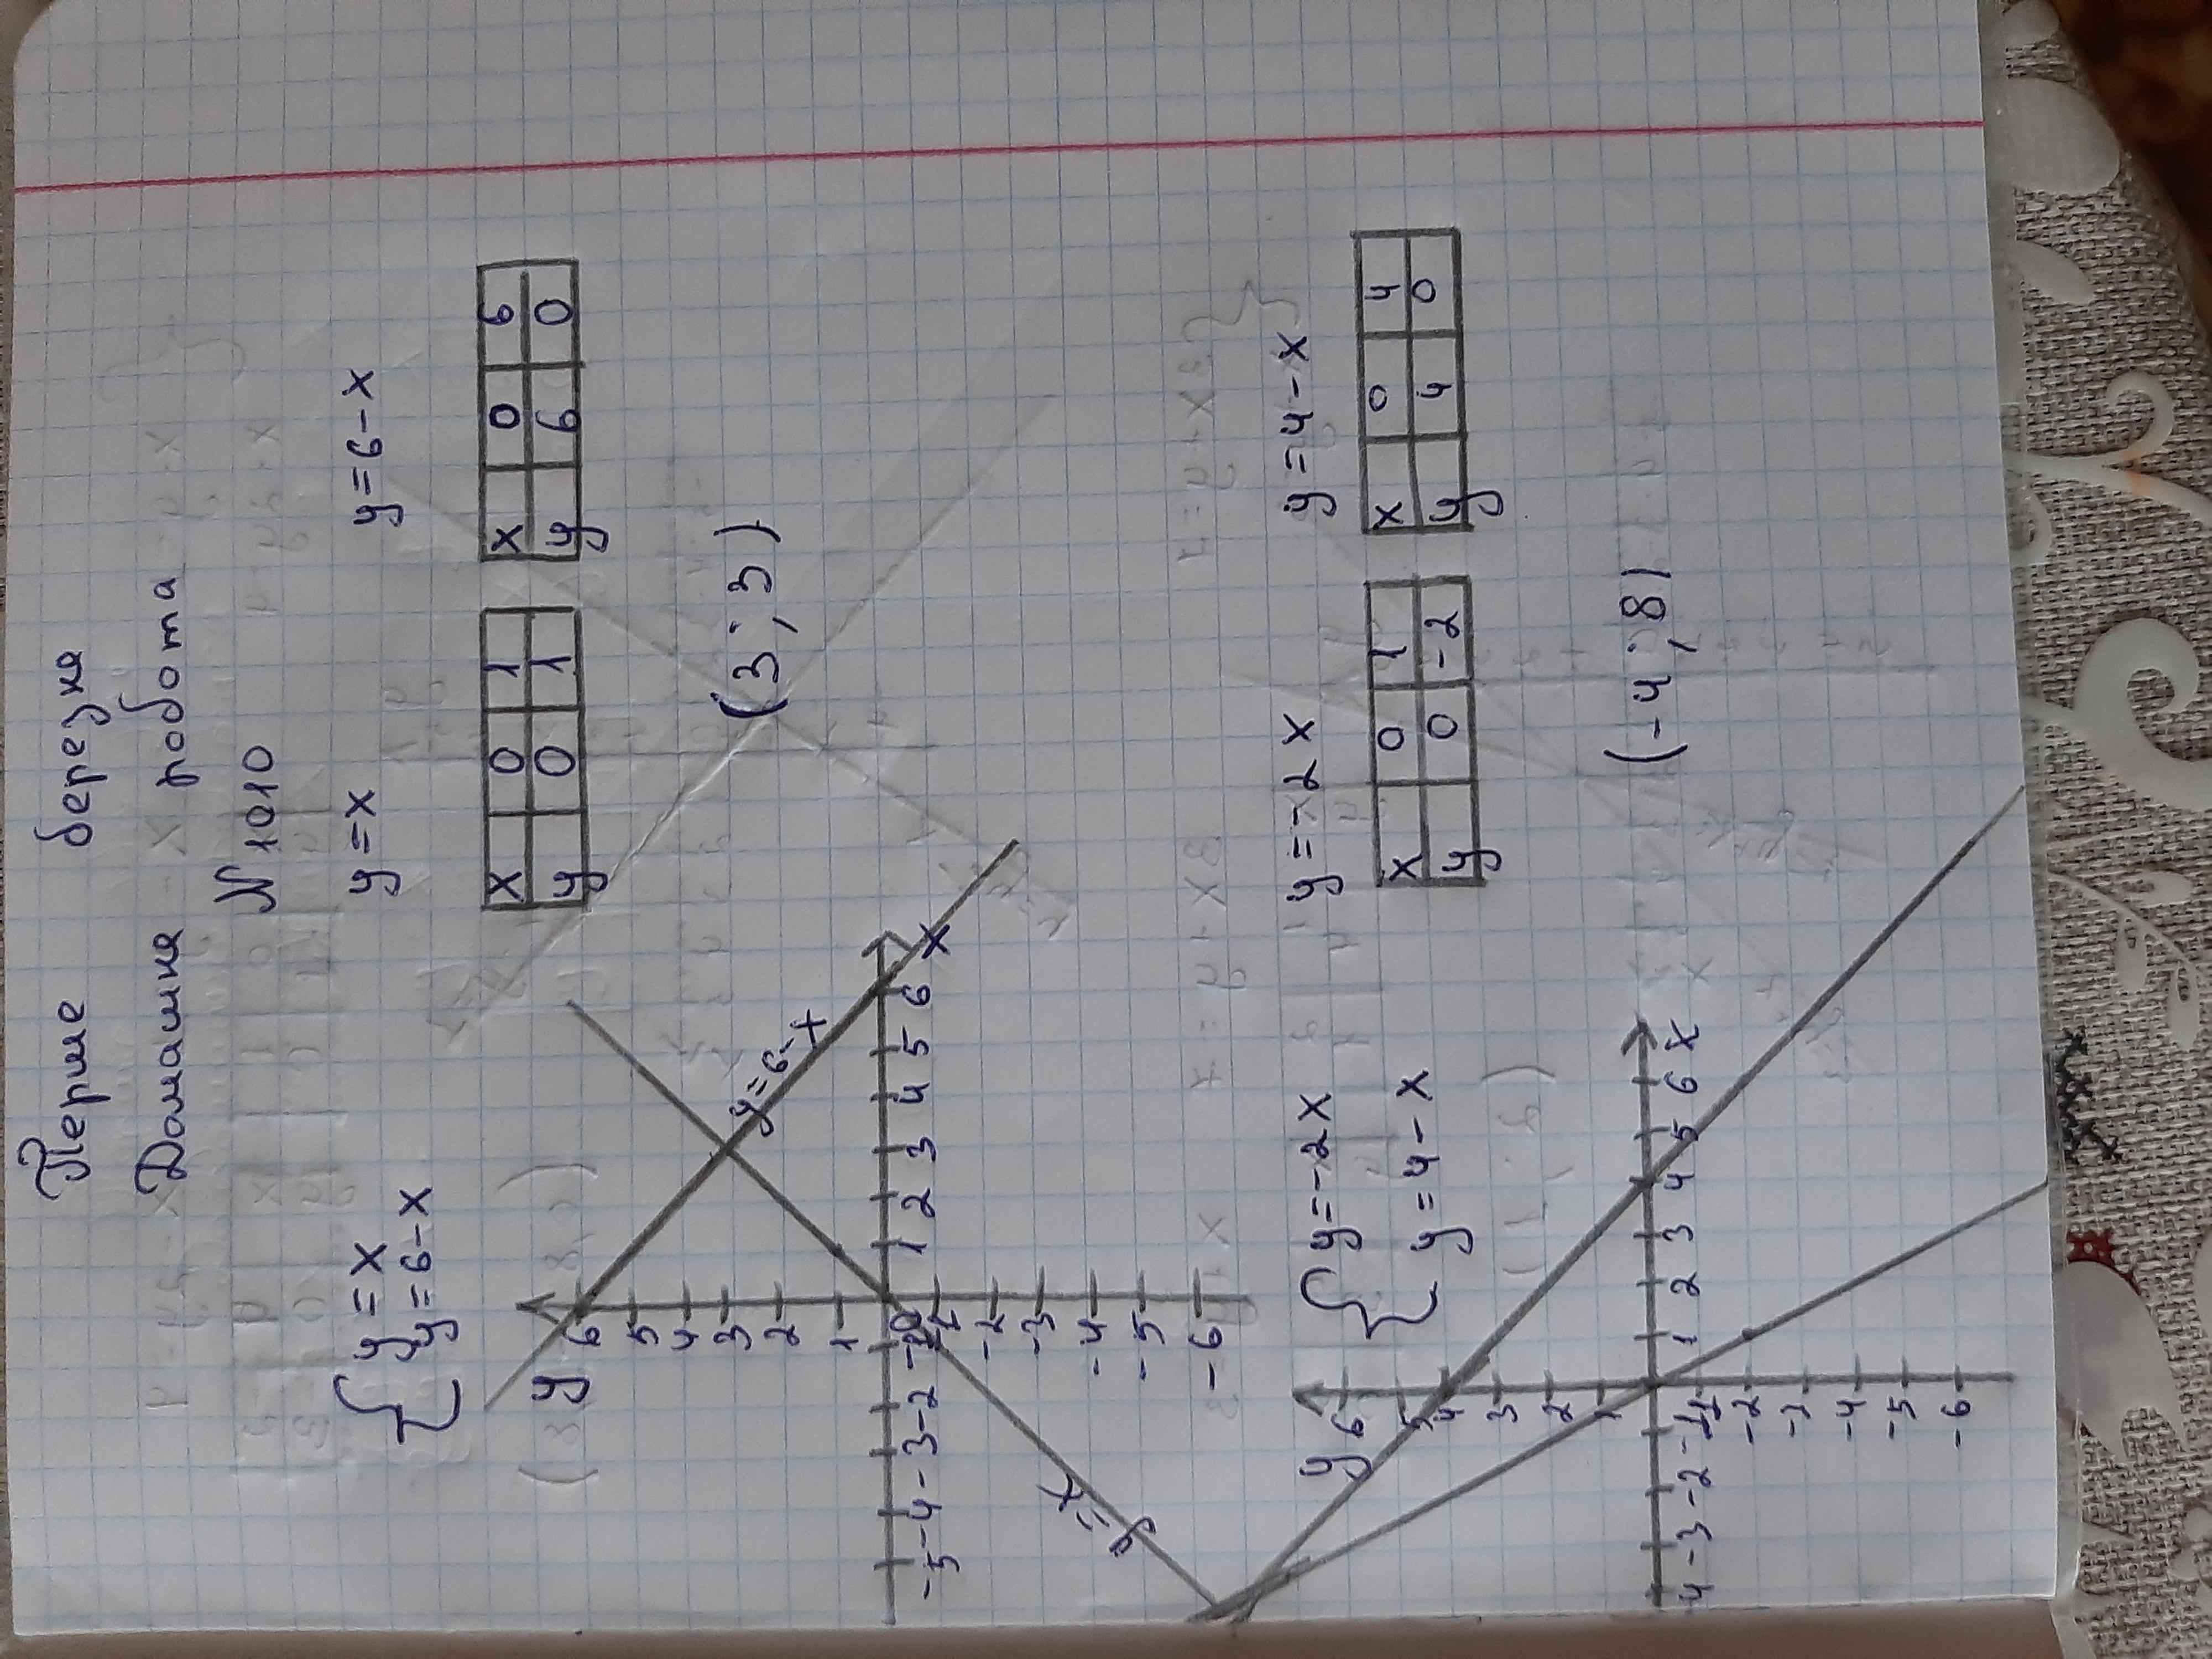 Перше березня
Домашня робота
N 1010
{ y=x
y=6-x
y=x
y=6-x
x 0 1
y 0 1
x 0 6
y 6 0
(3;3)
y
6
5
4
3
2
1
0
-1
-2
-3
-4
-5
-6
-5 -4 -3 -2 -1 1 2 3 4 5 6 x
y=6-x
y=x
{ y=-2x
y=4-x
y=-2x
y=4-x
x 0 1
y 0 -2
x 0 4
y 4 0
(-4;8)
y
6
5
4
3
2
1
-1
-2
-3
-4
-5
-6
-4 -3 -2 -1 1 2 3 4 5 6 x